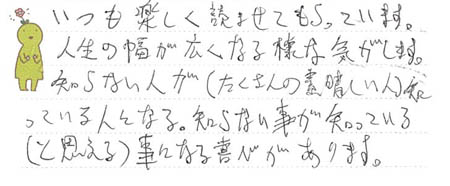 いつも楽しく読ませてもらっています。
人生の幅が広くなる様な気がします。
知らない人が(たくさんの素晴しい人)知
っている人になる。知らない事が知っている
(と思える)事になる喜びがあります。